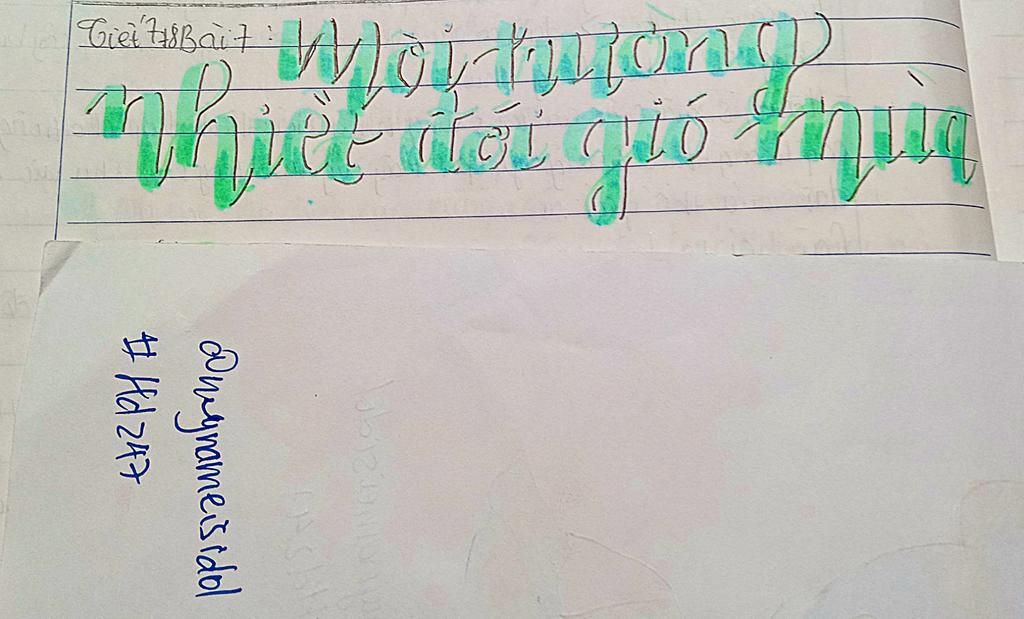 Tiết 7+8 Bài 7: Môi trường
nhiệt đới gió mùa
@mynameisidol
#Hd247